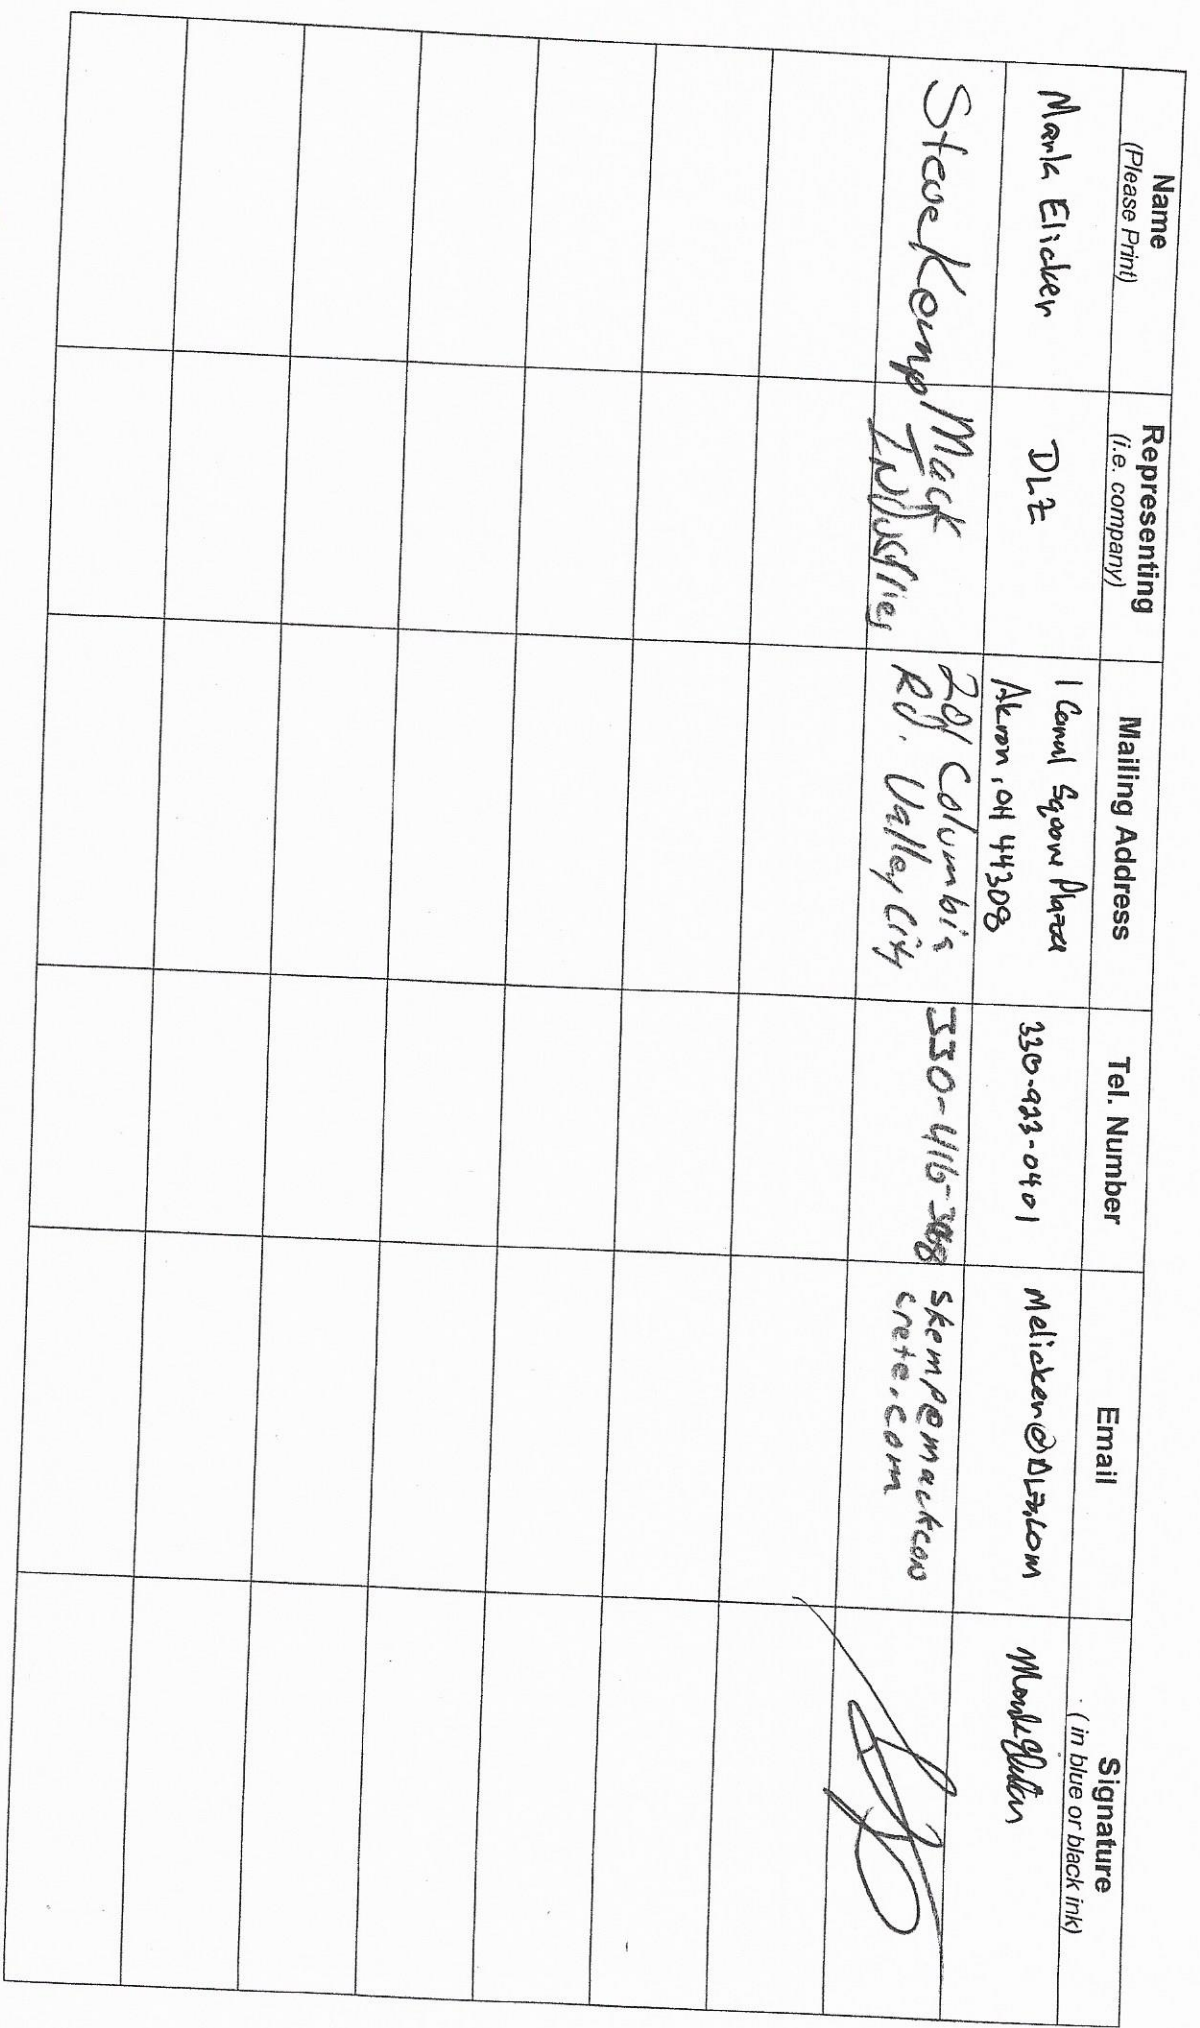 Name
(Please Print)
Representing
(i.e. company)
Mailing Address
Tel. Number
Email
Signature
( in blue or black ink)
Mark Elicker
DLZ
1 Canal Square Plaza
Akron, OH 44308
330-923-0401
Melicker@DLZ.com
Mark Elicker
Steve Kemp
Mack
Industries
201 Columbia
Rd. Valley City
330-416-
skemp@mackcon
crete.com